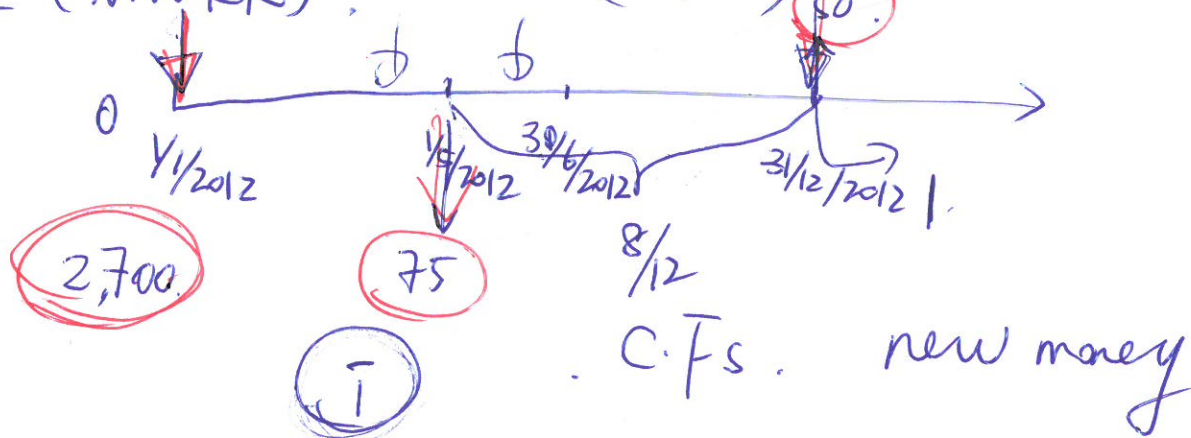 50.
0 1/1/2012 1/5/2012 30/6/2012 31/12/2012 1.
2,700 75 8/12
I . C.Fs. new money